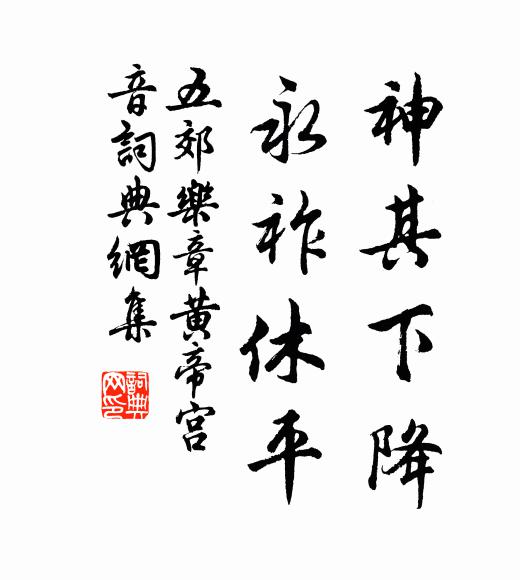 神其下降
永祚休平
五郊樂章黄帝宫
音詞典網集
詞典網印